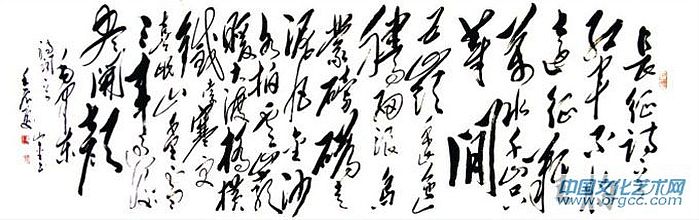 長征诗
红军不怕
远征难
萬水千山只
等閒
五岭逶迤
腾细浪烏
蒙磅礴走
泥丸金沙
水拍雲崖
暖大渡橋横
鐵索寒更
喜岷山千里雪
三军过後
尽開颜
毛泽东
壬辰夏
中国文化艺术网
www.orgcc.com